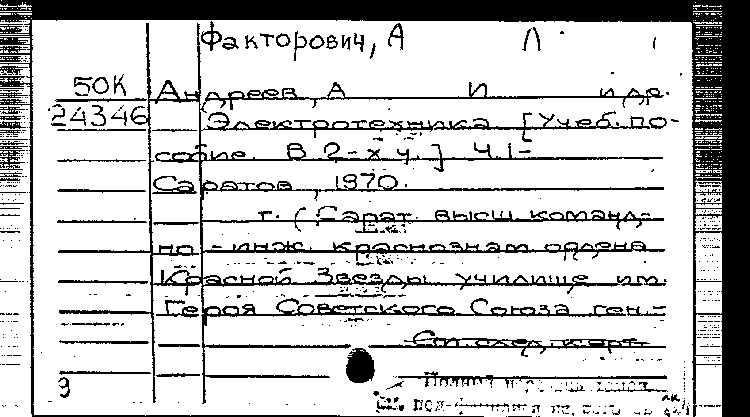 Факторович, А Л.
50К Андреев, А И и др.
24346 Электротехника [Учеб. по-
собие. В 2-х ч.] Ч.1-
Саратов, 1970.
т. (Сарат. высш. команд-
но-инж. краснознам ордена
Красной Звезды училище им.
Героя Советского Союза ген.-
См. след. карт.
9